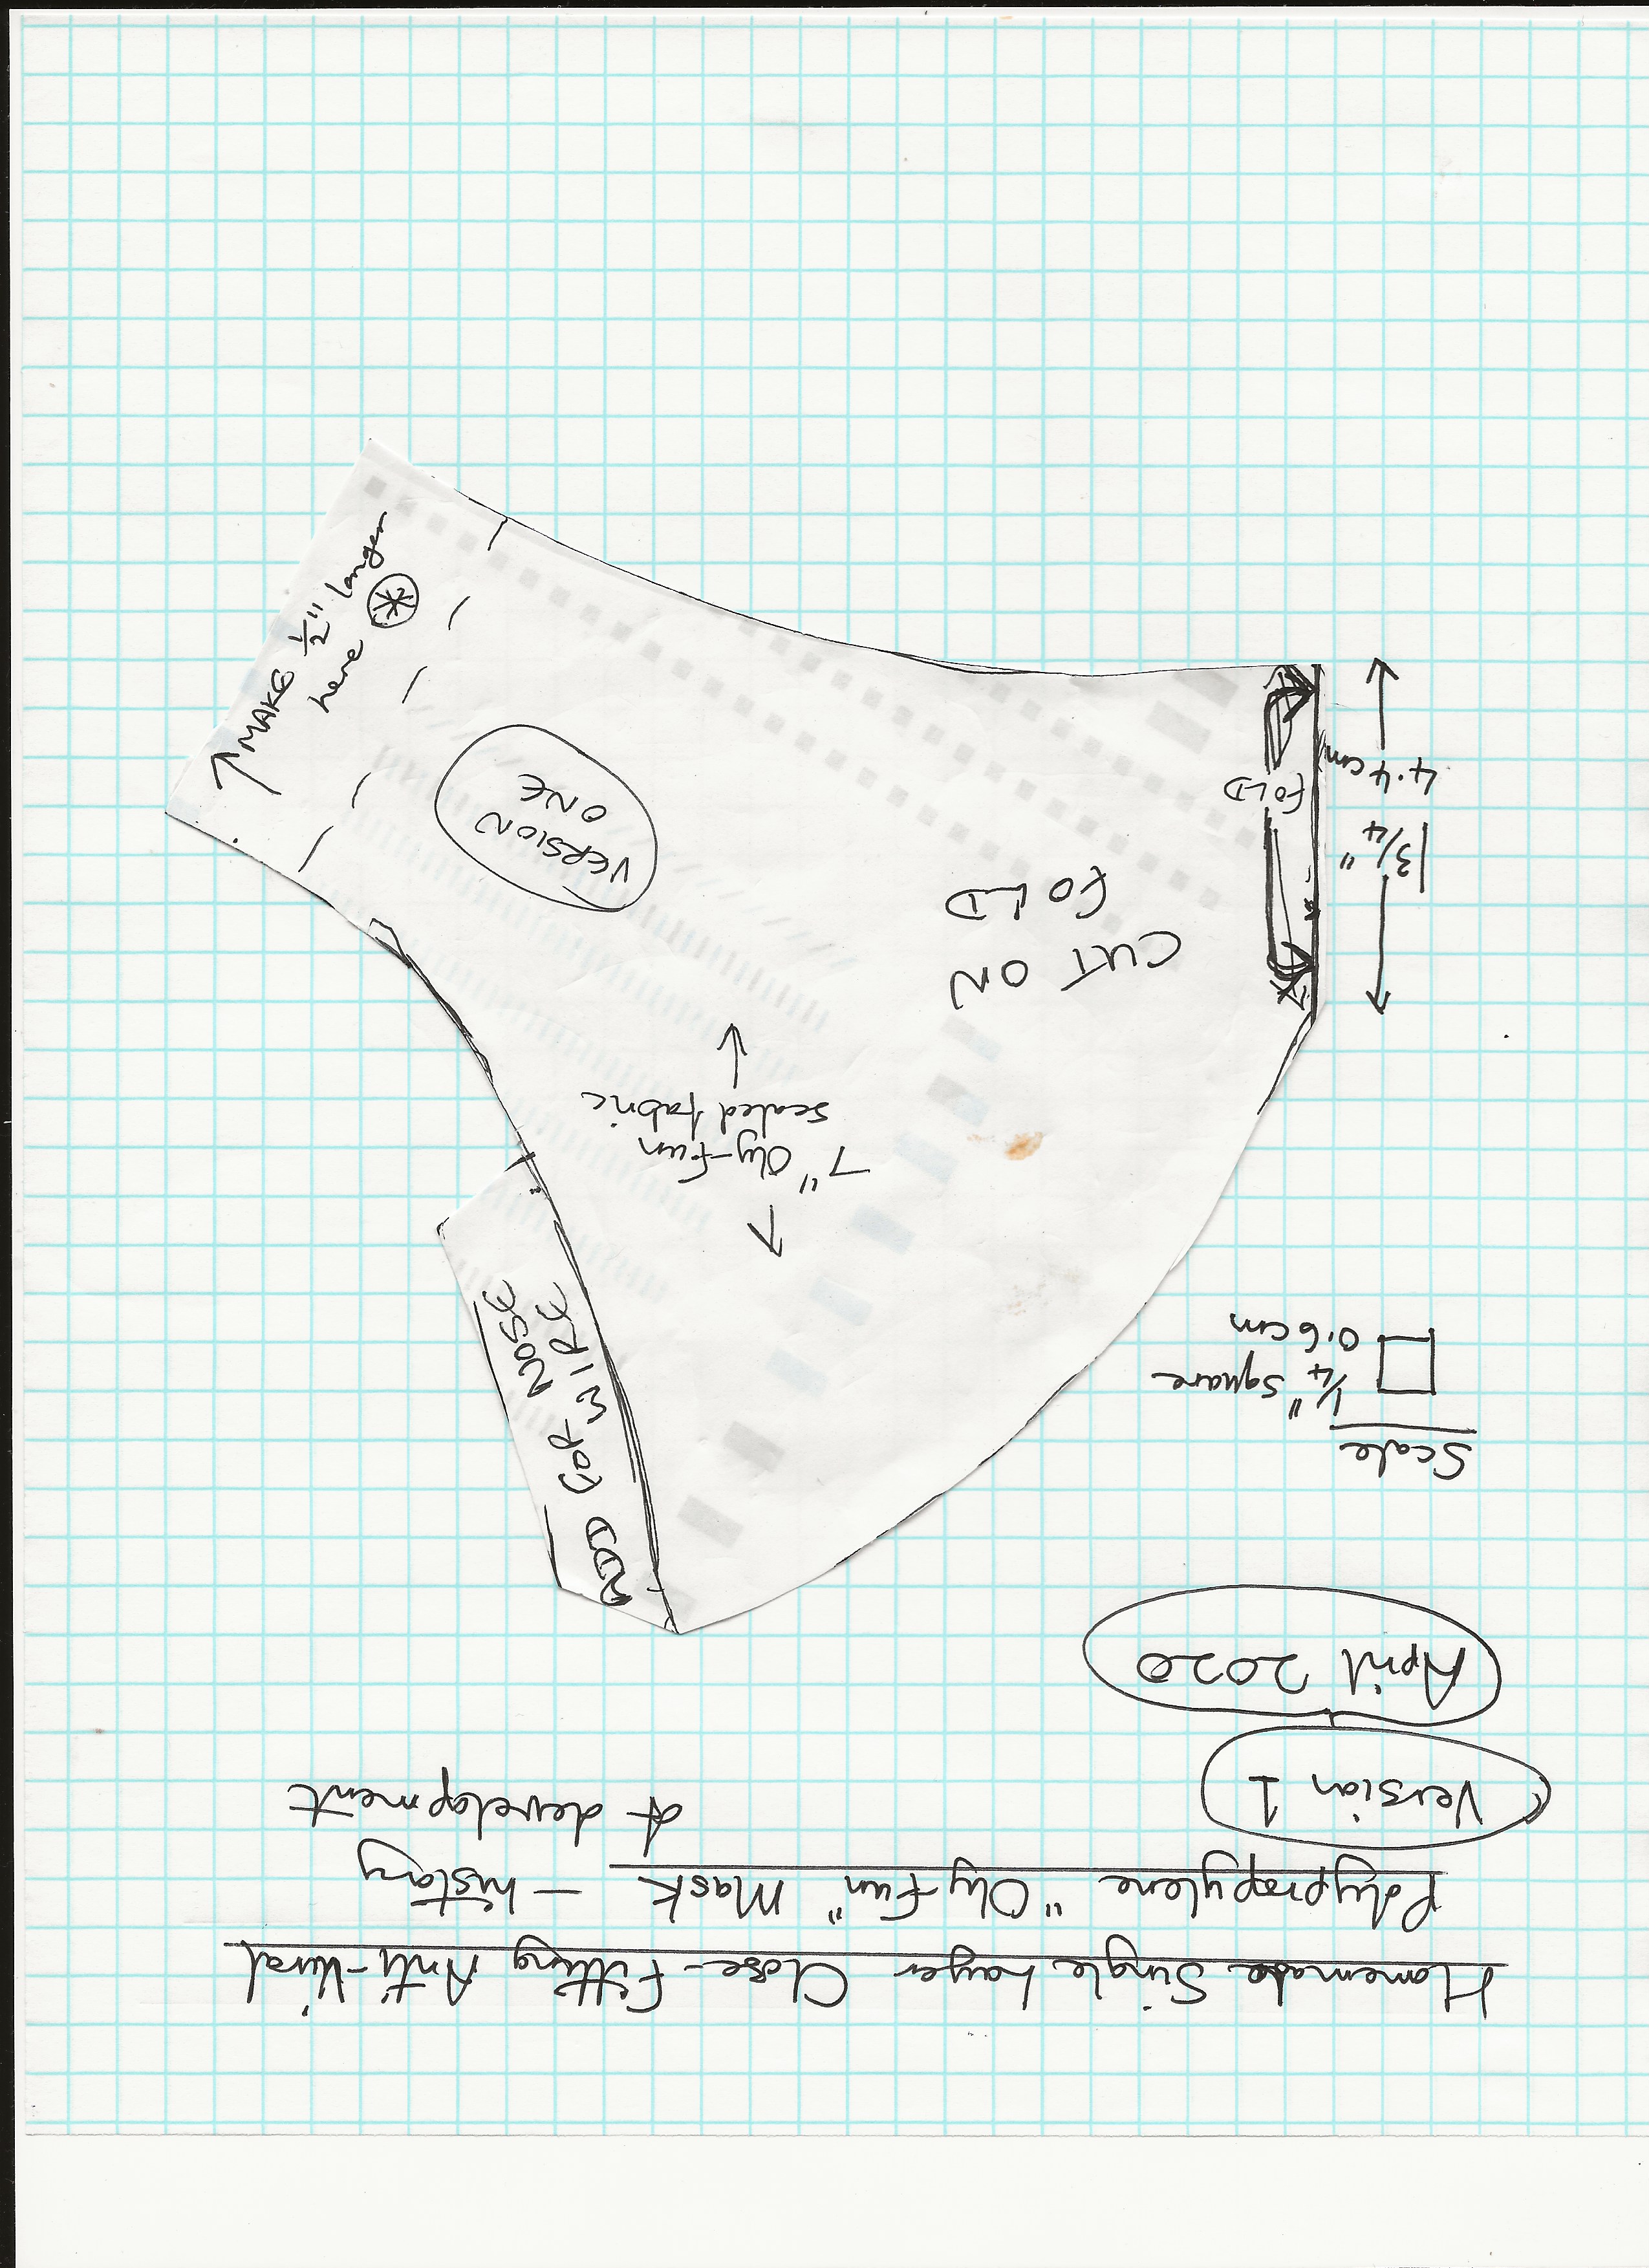 Homemade Single Layer Close-Fitting Anti-Viral
Polypropylene "Oly-Fun" Mask - history
of development
Version 1
April 2020
Scale
1/4" square
0.6cm
ADD FOR NOSE
WIRE
7" Oly-Fun
sealed fabric
CUT ON
FOLD
FOLD
1 3/4"
4.4cm
VERSION
ONE
MAKE 1/2" longer
here